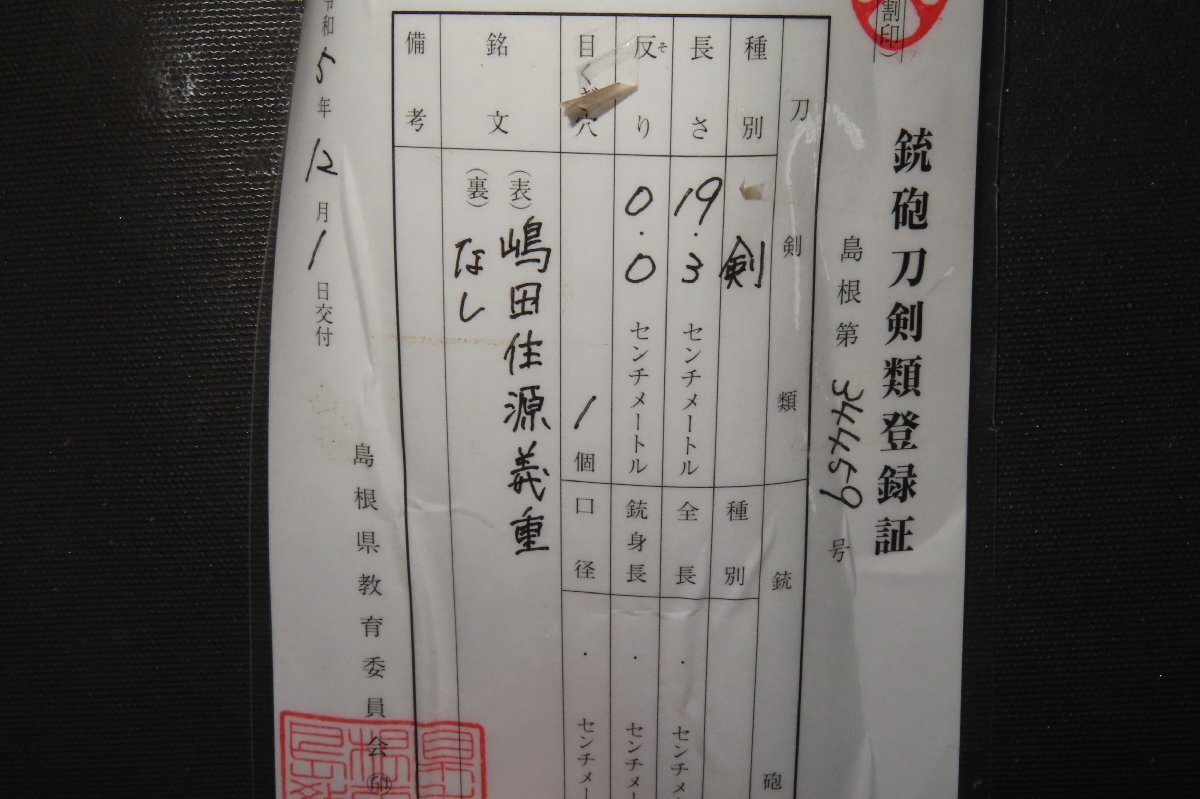 割印）
銃砲刀剣類登録証
島根第34459号
刀剣類
銃砲
種別 剣
長さ 19.3 センチメートル
反り そ 0.0 センチメートル
目くぎ穴 1個
銘文
（表）嶋田住源義重
（裏）なし
備考
種別
全長 ・ センチメ
銃身長 ・ センチメー
口径 ・ センチメー
令和5年12月1日交付
島根県教育委員会㊞